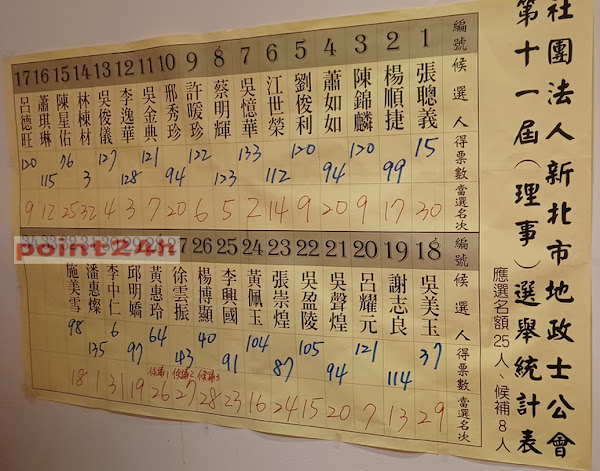 社團法人新北市地政士公會
第十一屆(理事)選舉統計表
應選名額25人、候補8人
編號 候選人 得票數 當選名次
1 張聰義 15 30
2 楊順捷 99 17
3 陳錦麟 120 9
4 蕭如如 94 20
5 劉俊利 120 9
6 江世榮 112 14
7 吳憶華 133 2
8 蔡明輝 123 5
9 許暖珍 122 6
10 邢秀珍 94 20
11 吳金典 121 7
12 李逸華 128 3
13 吳俊儀 127 4
14 林棟材 3 32
15 陳星佑 76 25
16 蕭琪琳 115 12
17 呂德旺 120 9
編號 候選人 得票數 當選名次
18 吳美玉 37 29
19 謝志良 114 13
20 呂耀元 121 7
21 吳聲煌 94 20
22 吳盈陵 105 15
23 張崇煌 87 24
24 黃佩玉 104 16
25 李興國 91 23
26 楊博顯 40 候補3 28
徐雲振 43 候補2 27
黃惠玲 64 候補1 26
邱明嬌 97 19
李中仁 6 31
潘惠燦 135 1
施美雪 98 18
point24h